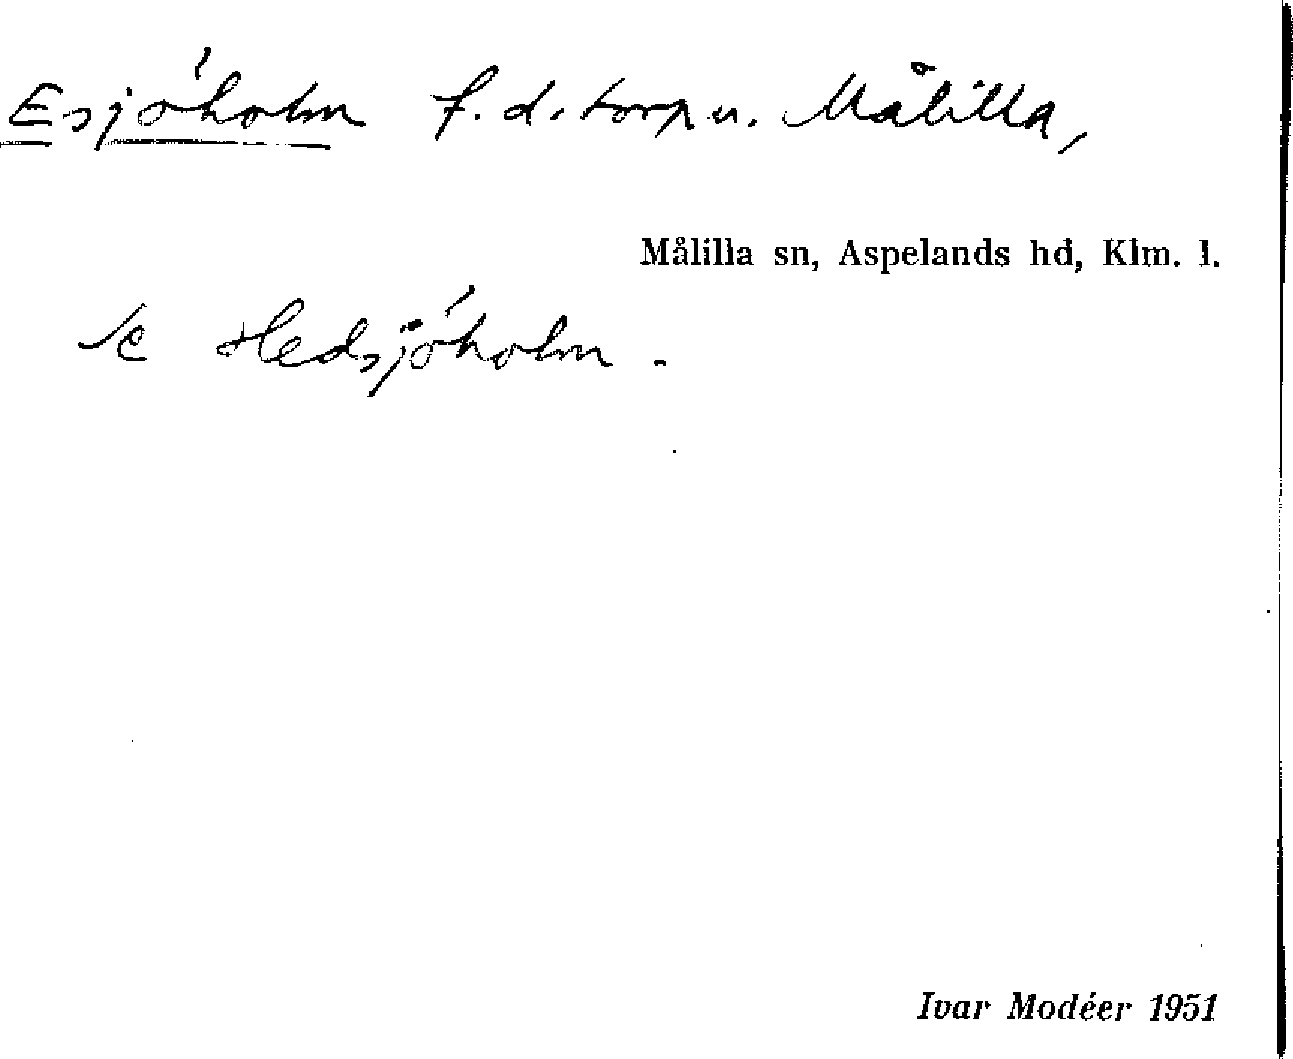 Esjöholm f.d. torp u. Målilla,
Målilla sn, Aspelands hd, Klm. l.
se Hedsjöholm.
Ivar Modéer 1951